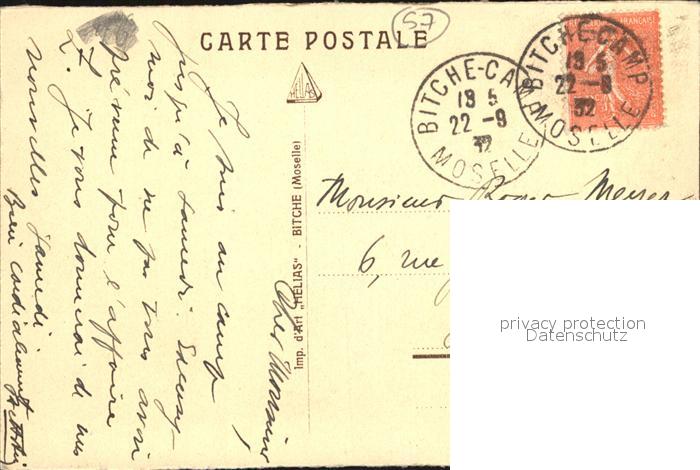 57
CARTE POSTALE
FRANÇAISE
BITCHE-CAMP
18 5
22-9
32
MOSELLE
BITCHE-CAMP
18 5
22-9
32
MOSELLE
HELIAS
Imp. d'Art "HELIAS" - BITCHE (Moselle)
Cher Monsieur,
Je suis au camp
jusqu'à samedi. Excusez
moi de ne pas vous avoir
prévenu pour l'affaire
Z. Je vous donnerai de mes
nouvelles samedi.
Bien cordialement
Monsieur Roger Meyer
6, rue
privacy protection
Datenschutz